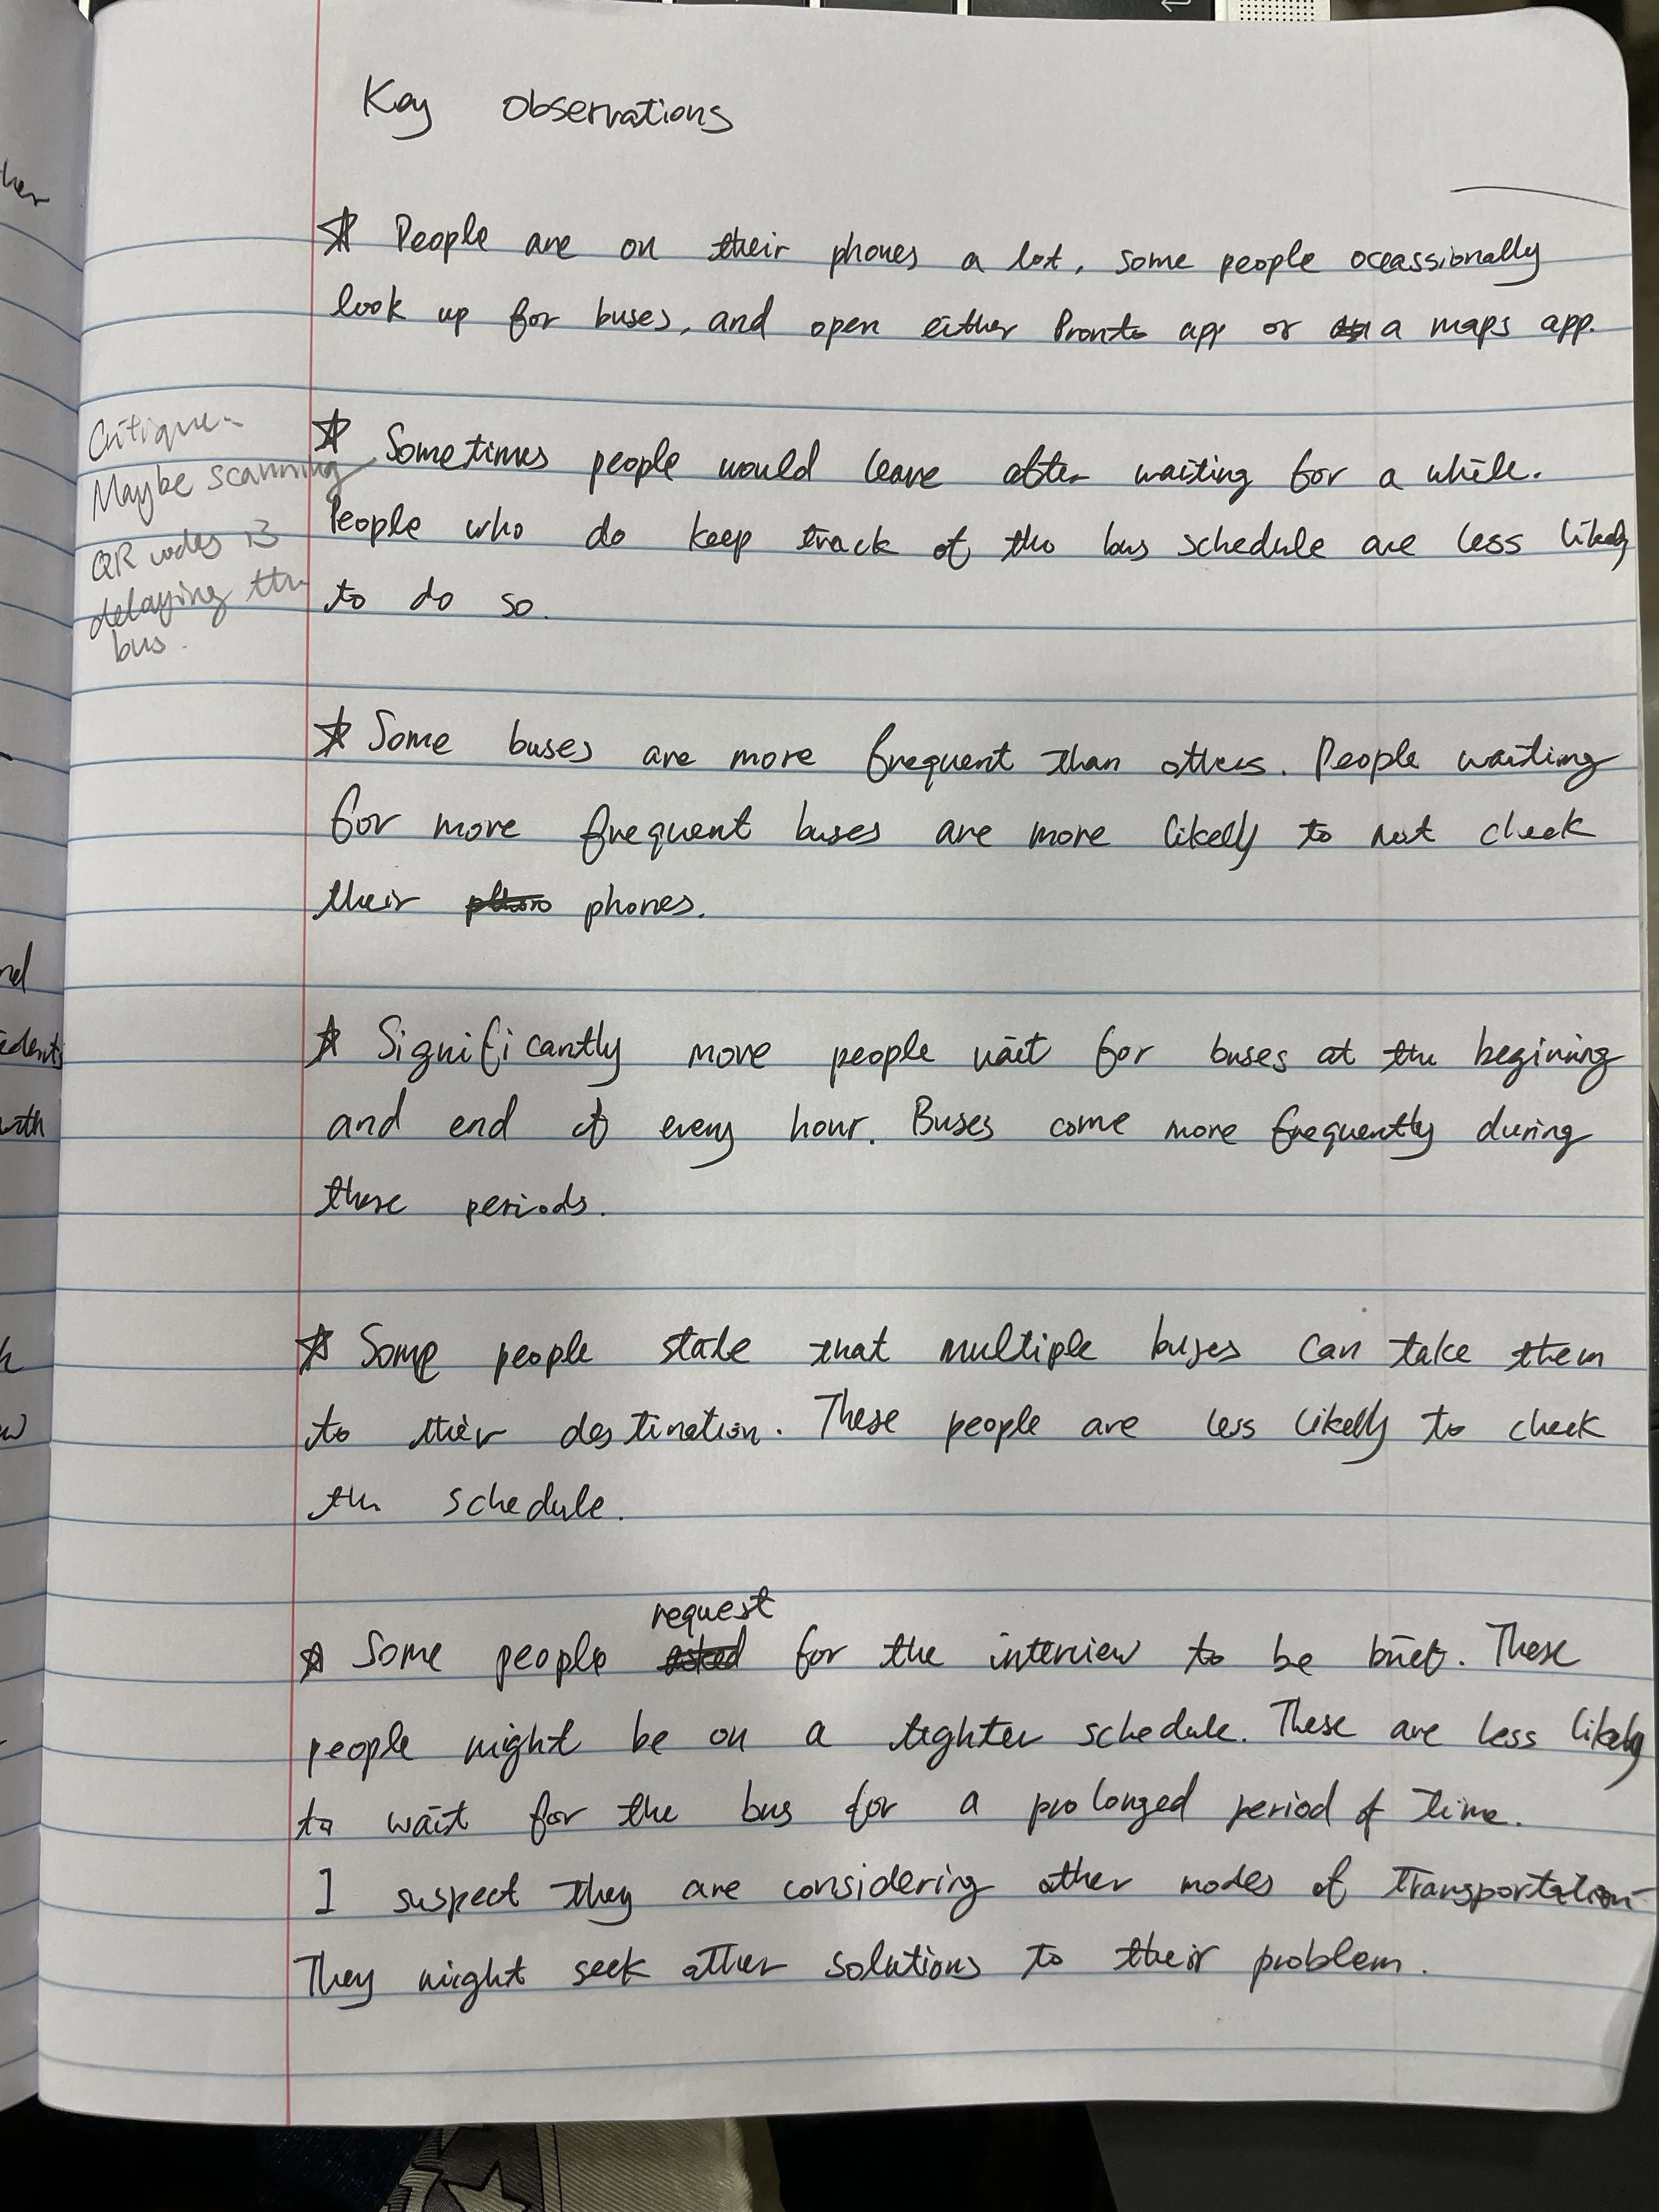 Key Observations
☆ People are on their phones a lot, some people oceassionally
look up for buses, and open either Pronto app or a maps app.
☆ Sometimes people would leave after waiting for a while.
People who do keep track of the bus schedule are less likely
to do so.
Critique-
Maybe scanning
QR codes is
delaying the
bus.
☆ Some buses are more frequent than others. People waiting
for more frequent buses are more likely to not check
their phones.
☆ Significantly more people wait for buses at the begining
and end of every hour. Buses come more frequently during
these periods.
☆ Some people state that multiple buses can take them
to their destination. These people are less likely to check
the schedule.
☆ Some people request for the interview to be brief. These
people might be on a tighter schedule. These are less likely
to wait for the bus for a prolonged period of time.
I suspect they are considering other modes of transportation
They might seek other solutions to their problem.